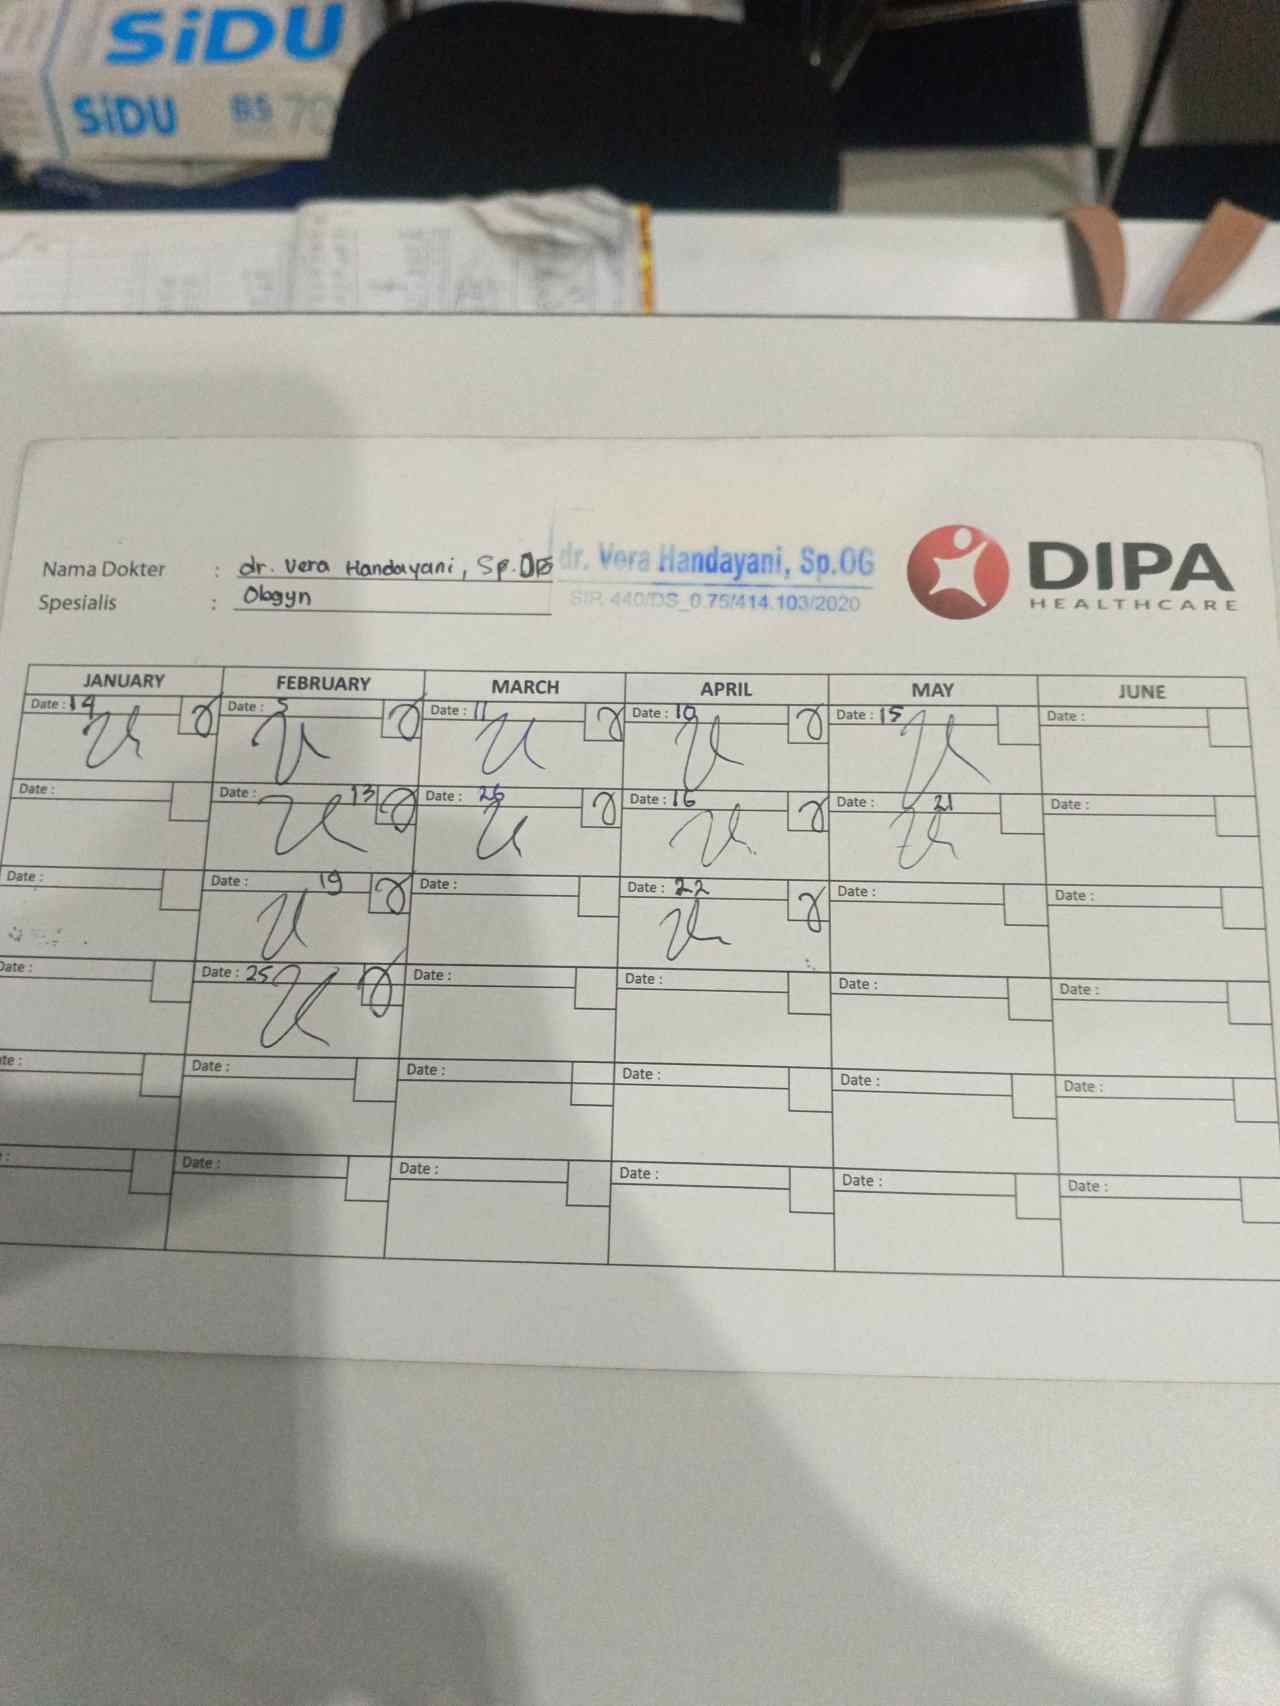 SiDU
SiDU BS 70
Nama Dokter : dr. Vera Handayani, Sp.OG
Spesialis : Obgyn
dr. Vera Handayani, Sp.OG
SIP. 440/DS_0.75/414.103/2020
DIPA
HEALTHCARE
JANUARY FEBRUARY MARCH APRIL MAY JUNE
Date : 14 Date : 5 Date : 11 Date : 10 Date : 15 Date :
Date : Date : 13 Date : 26 Date : 16 Date : 21 Date :
Date : Date : 19 Date : Date : 22 Date : Date :
Date : Date : 25 Date : Date : Date : Date :
te : Date : Date : Date : Date : Date :
: Date : Date : Date : Date : Date :